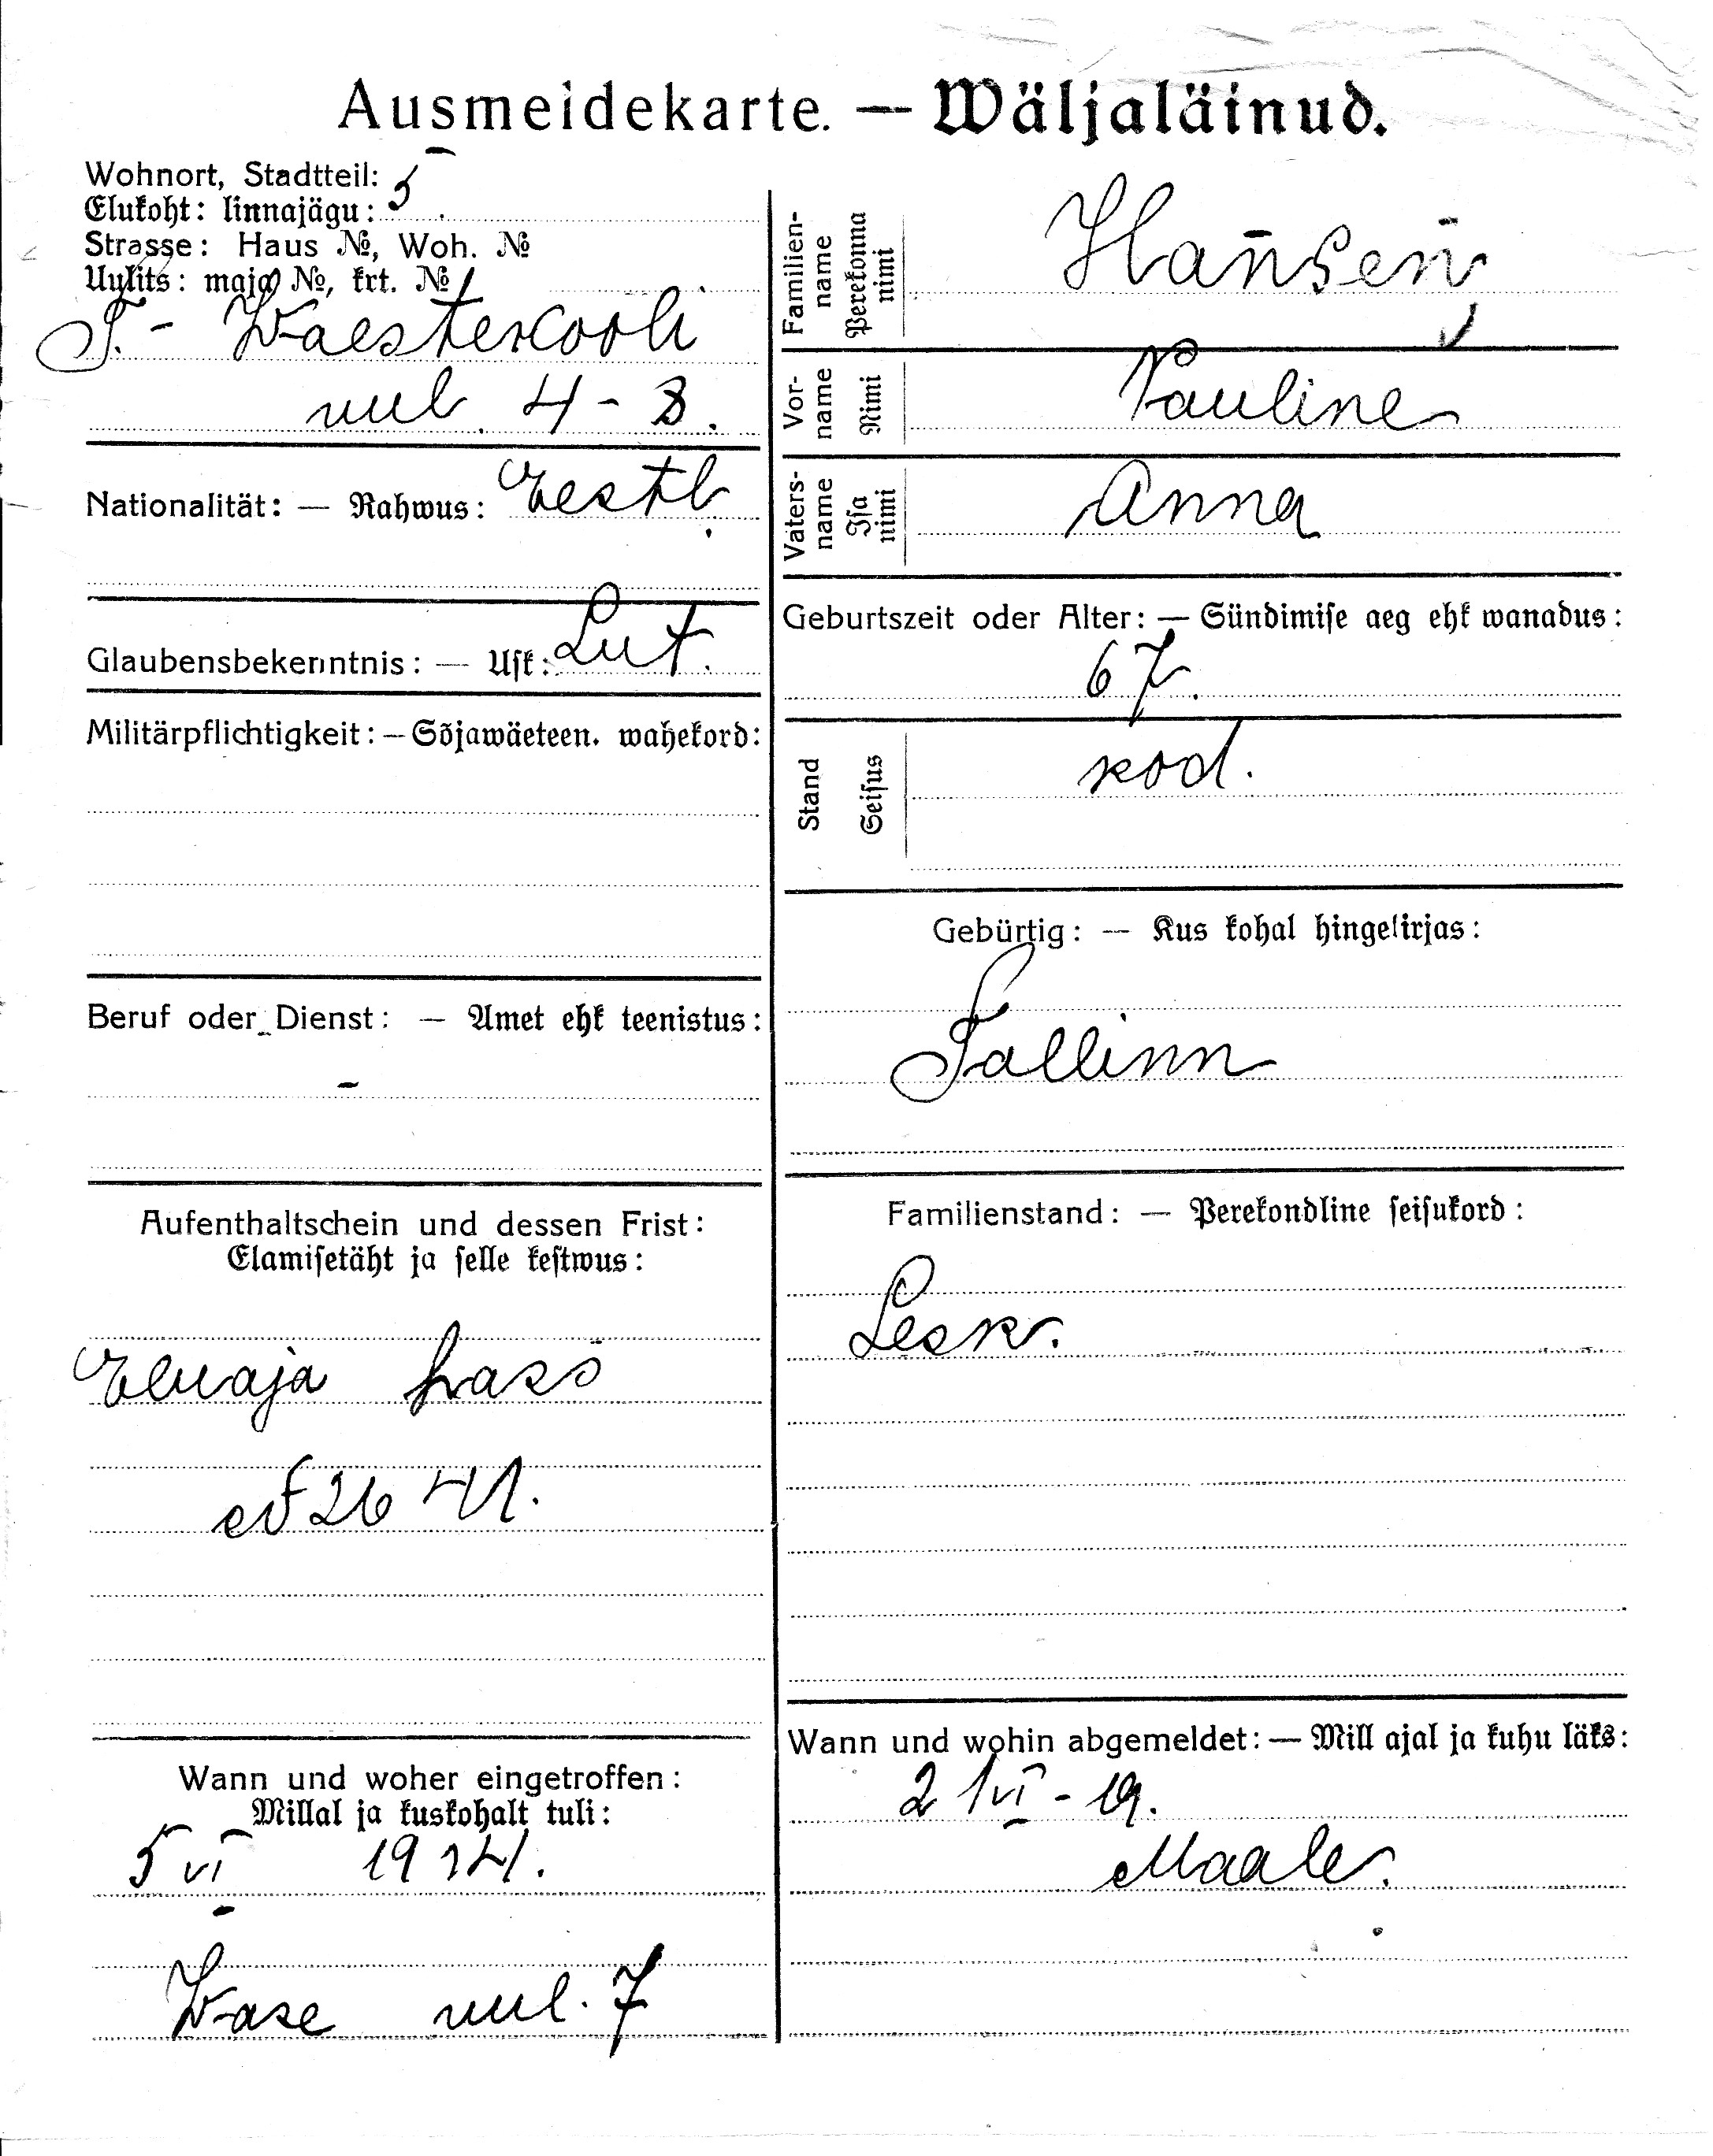 Ausmeidekarte. — Wäljaläinud.
Wohnort, Stadtteil:
Elukoht: linnajägu: 5
Strasse: Haus №, Woh. №
Uulits: maja №, krt. №
T.- Waestekooli
uul. 4 - 3.
Nationalität: — Rahwus: Eestl.
Glaubensbekenntnis: — Usk: Lut.
Militärpflichtigkeit: — Sõjawäeteen. wahekord:
Beruf oder Dienst: — Amet ehk teenistus:
-
Aufenthaltschein und dessen Frist:
Elamisetäht ja selle kestwus:
Eluaja pass
№ 2641.
Wann und woher eingetroffen:
Millal ja kuskohalt tuli:
5 VI 1914.
Wase uul. 7
Familien-
name
Perekonna
nimi
Hansen
Vor-
name
Nimi
Pauline
Vaters-
name
Isa
nimi
Anna
Geburtszeit oder Alter: — Sündimise aeg ehk wanadus:
67.
Stand
Seisus
kod.
Gebürtig: — Kus kohal hingekirjas:
Tallinn
Familienstand: — Perekondline seisukord:
Lesk.
Wann und wohin abgemeldet: — Mill ajal ja kuhu läks:
21 VI - 19.
Maale.